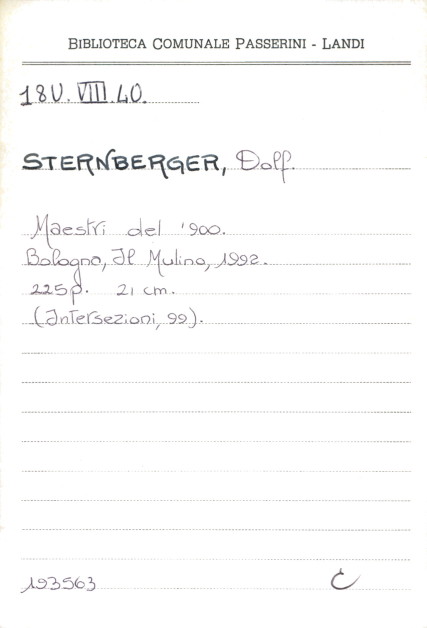 BIBLIOTECA COMUNALE PASSERINI - LANDI
18U. VIII. 40.
STERNBERGER, Dolf.
Maestri del '900.
Bologna, Il Mulino, 1992.
225p. 21 cm.
(Intersezioni, 99).
193563 C